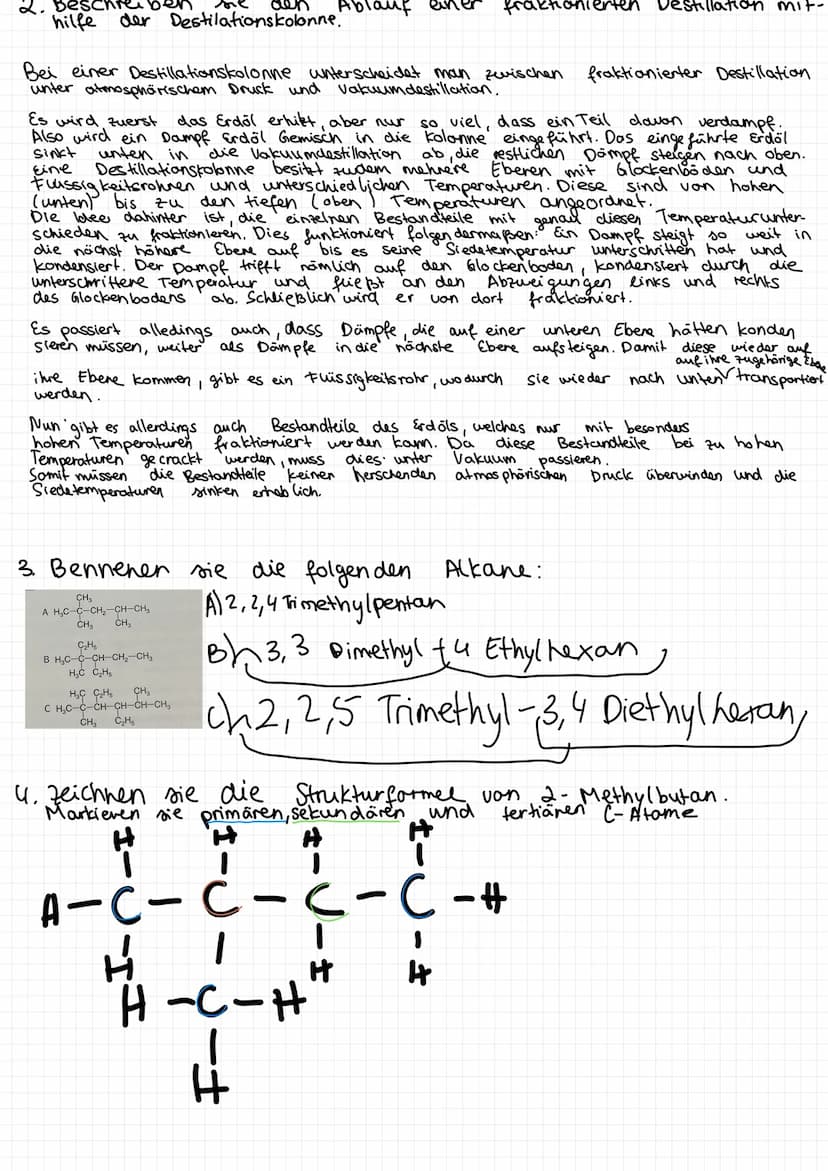 2. Beschreiben sie den Ablauf einer fraktionierten Destillation mit-
hilfe der Destilationskolonne.
Bei einer Destillationskolonne unterscheidet man zwischen fraktionierter Destillation
unter atmosphärischem Druck und Vakuumdestillation.
Es wird zuerst das Erdöl erhitzt, aber nur so viel, dass ein Teil davon verdampf.
Also wird ein Dampf Erdöl Gemisch in die Kolonne eingeführt. Das eingeführte Erdöl
sinkt unten in die Vakuumdestillation ab, die restlichen Dämpf steigen nach oben.
Eine Destillationskolonne besitzt zudem mehrere Ebenen mit Glockenböden und
Flüssigkeitsrohren und unterschiedlichen Temperaturen. Diese sind von hohen
(unten) bis zu den tiefen (oben) Temperaturen angeordnet.
Die Idee dahinter ist, die einzelnen Bestandteile mit genau diesen Temperaturunter-
schieden zu fraktionieren. Dies funktioniert folgendermaßen: Ein Dampf steigt so weit in
die nächst höhere Ebene auf bis es seine Siedetemperatur unterschritten hat und
kondensiert. Der Dampf trifft nämlich auf den Glockenboden, kondensiert durch die
unterschrittene Temperatur und fließt an den Abzweigungen links und rechts
des Glockenbodens ab. Schließlich wird er von dort fraktioniert.
Es passiert alledings auch, dass Dämpfe, die auf einer unteren Ebene hätten konden
sieren müssen, weiter als Dämpfe in die nächste Ebene aufsteigen. Damit diese wieder auf
auf ihre zugehörige Ebene
ihre Ebene kommen, gibt es ein Flüssigkeitsrohr, wodurch sie wieder nach unten transportiert
werden.
Nun gibt es allerdings auch Bestandteile des Erdöls, welches nur mit besonders
hohen Temperaturen fraktioniert werden kann. Da diese Bestandteile bei zu hohen
Temperaturen gecrackt werden, muss dies unter Vakuum passieren.
Somit müssen die Bestandteile keinen herschenden atmosphärischen Druck überwinden und die
Siedetemperaturen sinken erheblich.
3. Bennenen sie die folgenden Alkane:
CH₃
A H₃C-C-CH₂-CH-CH₃
CH₃ CH₃
A) 2,2,4 Trimethylpentan
C₂H₅
B H₃C-C-CH-CH₂-CH₃
H₃C C₂H₅
B) 3,3 Dimethyl + 4 Ethylhexan
H₃C C₂H₅ CH₃
C H₃C-C-CH-CH-CH-CH₃
CH₃ C₂H₅
C) 2,2,5 Trimethyl-3,4 Diethylhexan
4. Zeichnen sie die Strukturformel von 2-Methylbutan.
Markieren sie primären, sekundären und tertiären C-Atome
H H H H
A-C-C-C-C-H
H H H
H-C-H
H